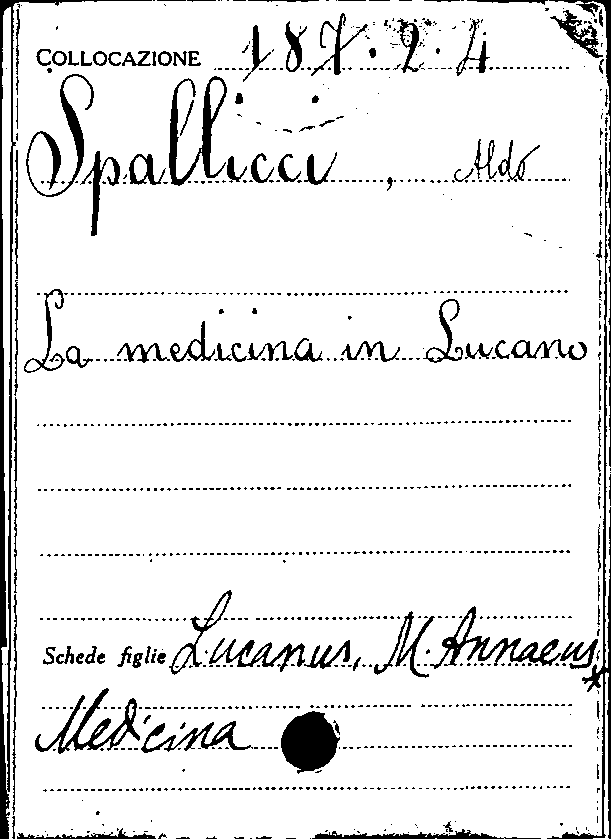 COLLOCAZIONE 187.2.4
Spallicci, Aldo
La medicina in Lucano
Schede figlie Lucanus, M. Annaeus *
Medicina